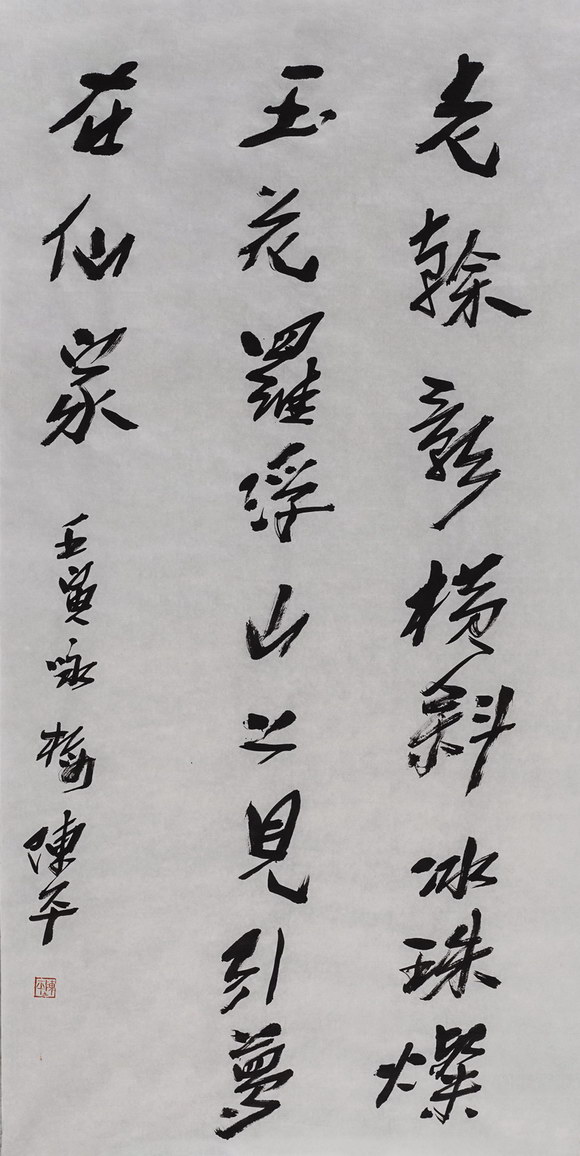 老榦影横斜冰珠燦
玉花羅浮山上見引夢
在仙家
壬寅咏梅陳平